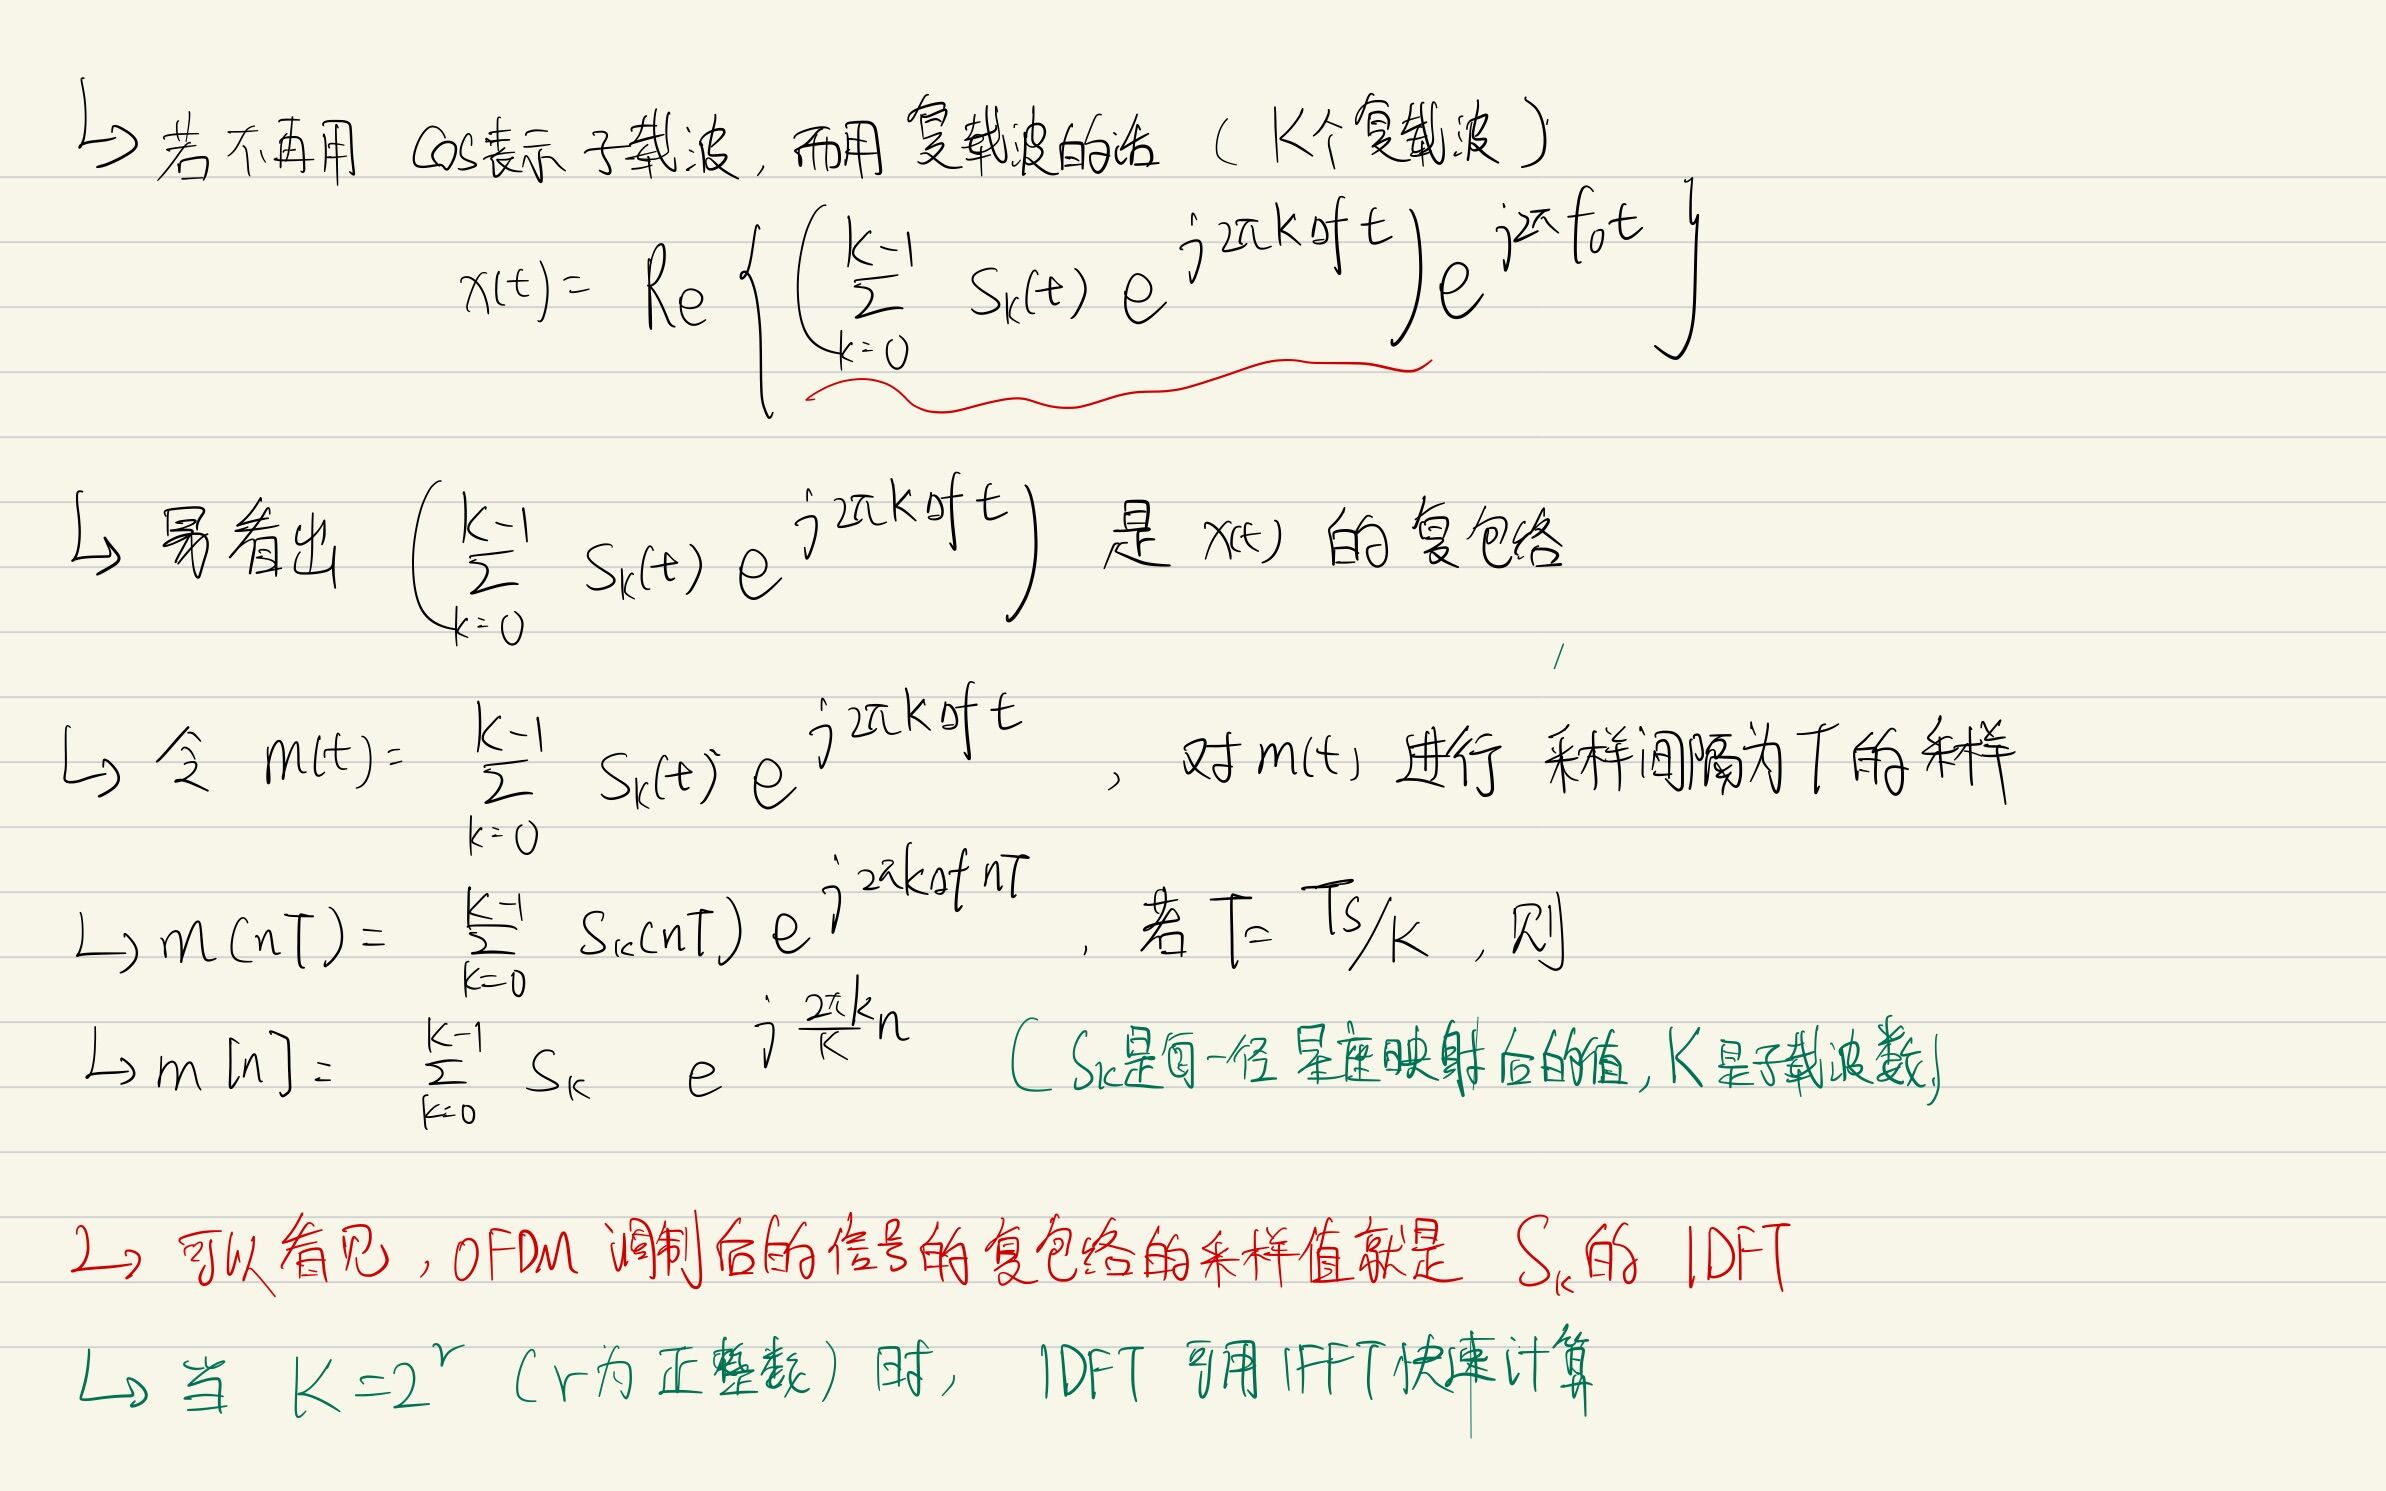 ↳ 若不再用 cos表示 子载波, 而用 复载波的话 ( K个复载波 )
x(t) = Re { ( \sum_{k=0}^{K-1} S_k(t) e^{j2πkΔft} ) e^{j2πf_0t} }
↳ 易看出 ( \sum_{k=0}^{K-1} S_k(t) e^{j2πkΔft} ) 是 x(t) 的复包络
↳ 令 m(t) = \sum_{k=0}^{K-1} S_k(t) e^{j2πkΔft} , 对 m(t) 进行 采样间隔为T的采样
↳ m(nT) = \sum_{k=0}^{K-1} S_k(nT) e^{j2πkΔfnT} , 若 T = Ts/K , 则
↳ m[n] = \sum_{k=0}^{K-1} S_k e^{j\frac{2πk}{K}n} ( S_k是每一径 星座映射后的值, K 是子载波数)
↳ 可以看见, OFDM 调制后的信号的复包络的采样值就是 S_k 的 IDFT
↳ 当 K=2^r (r为正整数) 时, IDFT 可用 IFFT快速计算